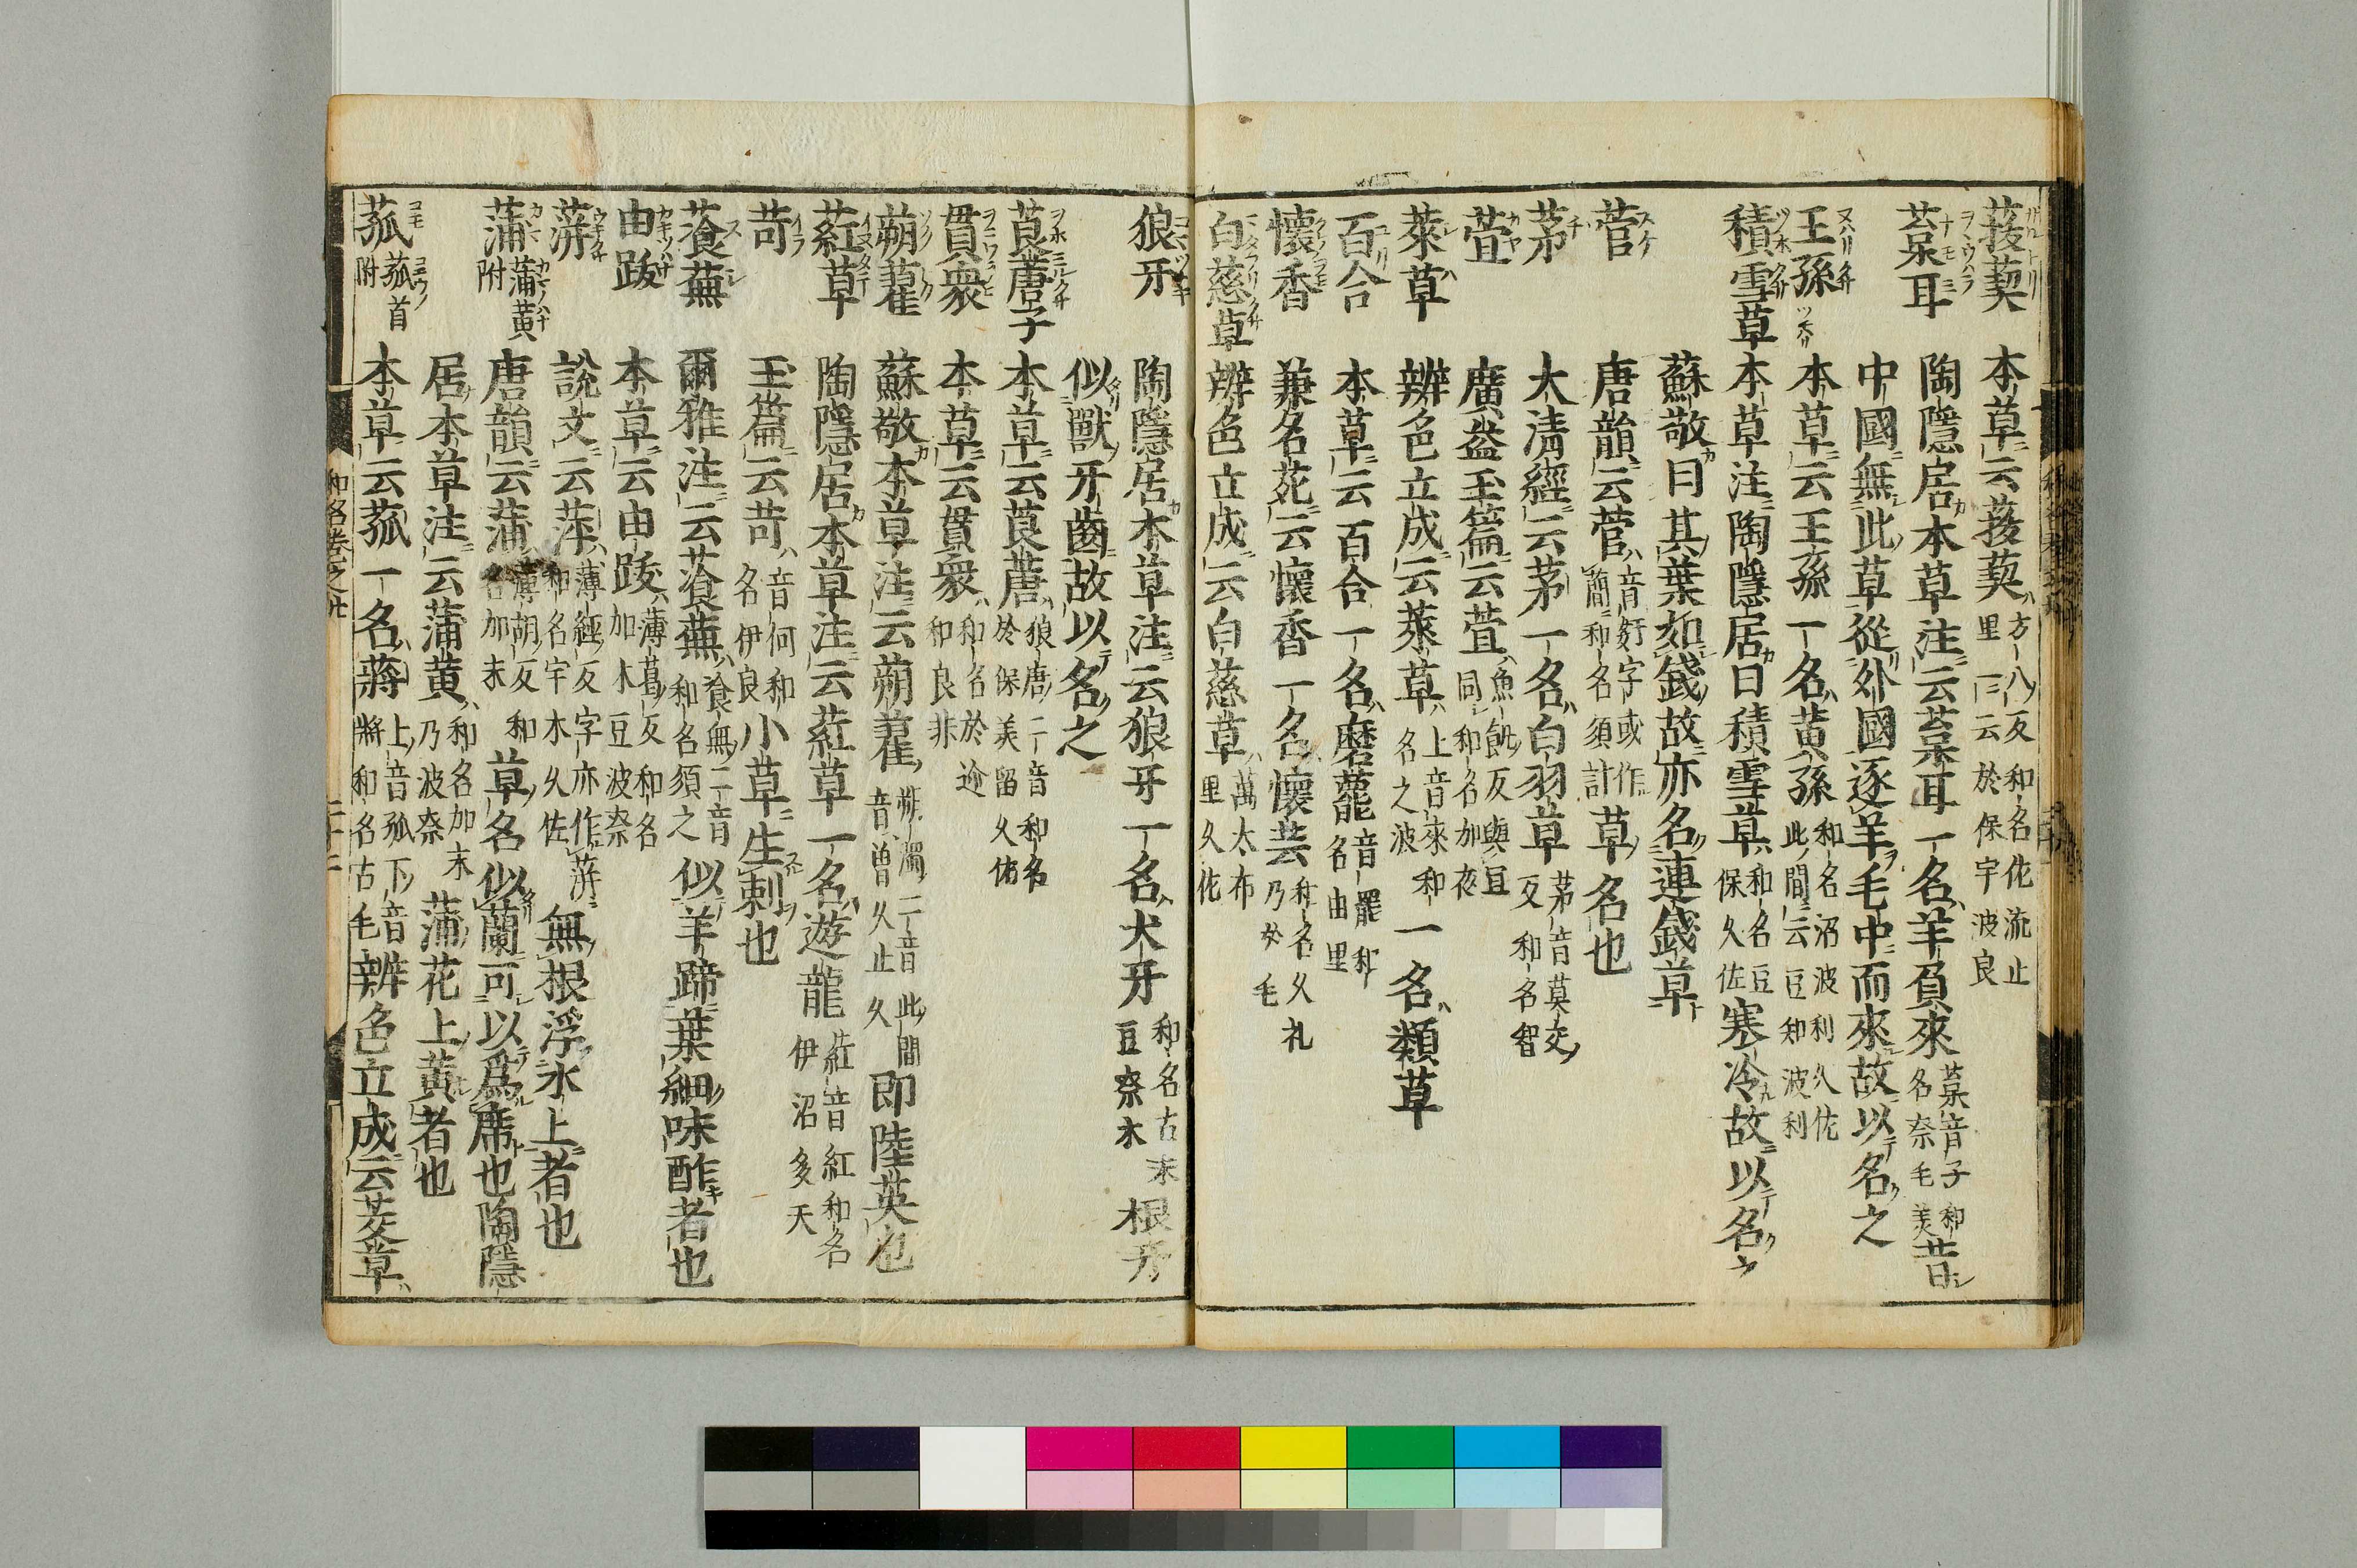 菝葜 本草云菝葜 方八反和名佐流止里一云於保宇波良
葈耳 陶隱居本草注云葈耳一名羊負來 葈音子和名奈毛美 昔
中國無此草從外國逐羊毛中而來故以名之
王孫 本草云王孫一名黃孫 和名沼波利久佐此間云豆知波利
積雪草 本草注陶隱居曰積雪草 和名豆保久佐 寒冷故以名
蘇敬曰其葉如錢故亦名連錢草
菅 唐韻云菅 音姧字或作蕑和名須計 草名也
茅 大清經云茅一名白羽草 茅音莫交反和名智
萱 廣益玉篇云萱 魚飢反與宜同和名加夜
萊草 辨色立成云萊草 上音來和名之波 一名類草
百合 本草云百合一名磨䕷 音罷和名由里
懷香 兼名苑云懷香一名懷芸 和名久礼乃於毛
白慈草 辨色立成云白慈草 萬太布里久佐
狼牙 陶隱居本草注云狼牙一名犬牙 和名古末豆奈木 根牙
似獸牙齒故以名之
莨蓎子 本草云莨蓎 狼唐二音和名於保美留久佐
貫衆 本草云貫衆 和名於迩和良非
蒴藋 蘇敬本草注云蒴藋 朔濁二音此間音曽久止久 即陸英也
葒草 陶隱居本草注云葒草一名遊龍 葒音紅和名伊沼多天
苛 玉篇云苛 音何和名伊良 小草生刺也
蕵蕪 爾雅注云蕵蕪 飡無二音和名須之 似羊蹄葉細味酢者也
由跋 本草云由跋 薄葛反和名加木豆波奈
蓱 說文云萍 薄經反字亦作蓱和名宇木久佐 無根浮水上者也
蒲 蒲黃附 唐韻云蒲 薄胡反和名加末 草名似蘭可以爲席也陶隱
居本草注云蒲黃 和名加末乃波奈 蒲花上黃者也
菰 菰首附 本草云菰一名蔣 上音孤下音將和名古毛 辨色立成云茭草
和名卷之廿 二十二